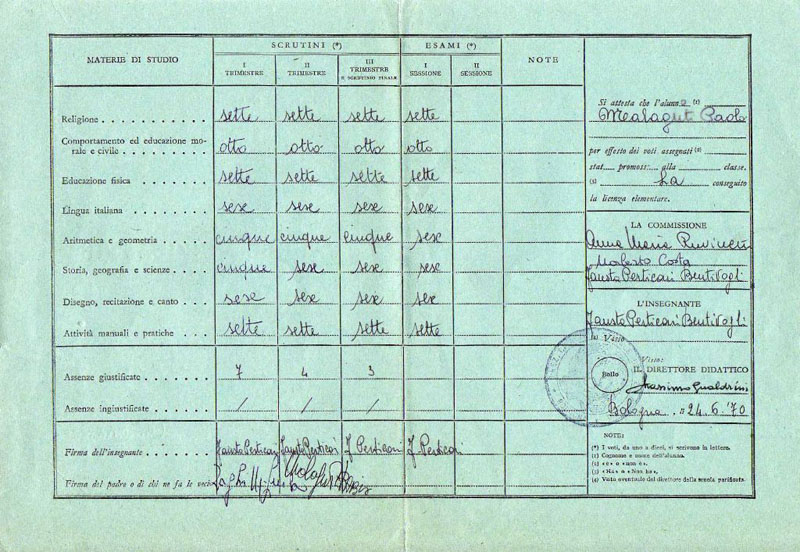 MATERIE DI STUDIO
SCRUTINI (*)
ESAMI (*)
NOTE
I TRIMESTRE
II TRIMESTRE
III TRIMESTRE E SCRUTINIO FINALE
I SESSIONE
II SESSIONE
Religione sette sette sette sette
Comportamento ed educazione mo-
rale e civile otto otto otto otto
Educazione fisica sette sette sette sette
Lingua italiana sexe sexe sexe sexe
Aritmetica e geometria cinque cinque cinque sexe
Storia, geografia e scienze cinque sexe sexe sexe
Disegno, recitazione e canto sexe sexe sexe sexe
Attività manuali e pratiche sette sette sette sette
Assenze giustificate 7 4 3
Assenze ingiustificate / / /
Firma dell'insegnante Fausto Perticari Fausto Perticari F. Perticari F. Perticari
Firma del padre o di chi ne fa le veci
Si attesta che l'alunno (1)
Malaguti Paolo
per effetto dei voti assegnati (2)
stat promoss alla classe.
(3) ha conseguito
la licenza elementare.
LA COMMISSIONE
Anna Maria
Roberto Costa
Fausto Perticari Bentivogli
L'INSEGNANTE
Fausto Perticari Bentivogli
Visto:
Bollo
IL DIRETTORE DIDATTICO
Massimo Gualdrini
Bologna 24.6.70
NOTE:
(*) I voti, da uno a dieci, si scrivono in lettere.
(1) Cognome e nome dell'alunno.
(2) «è» o «non è».
(3) «Ha» o «Non ha».
(4) Visto eventuale del direttore della scuola parificata.